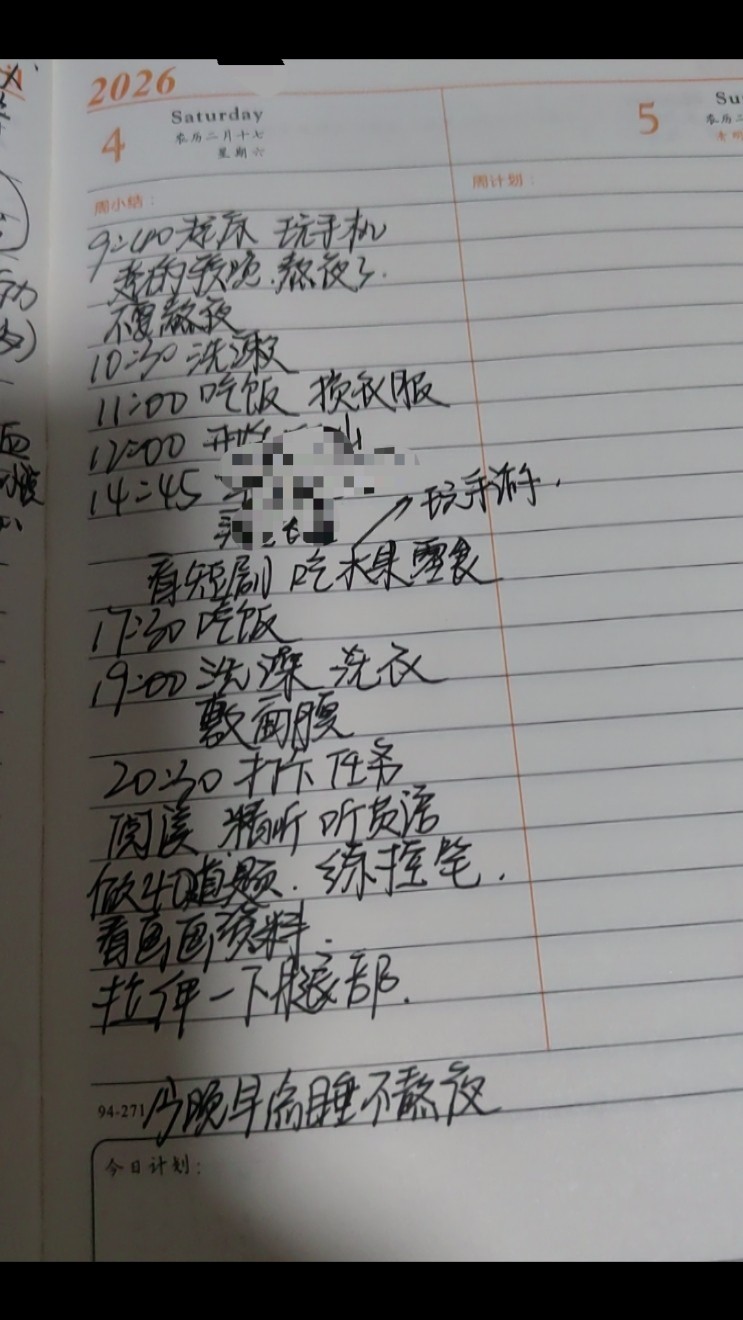 2026
4
Saturday
农历二月十七
星期六
5
Su
农历二
清明
周小结:
周计划:
9:40 起床 玩手机
不要熬夜
10:30 洗漱
11:00 吃饭 换衣服
12:00
14:45
玩手游.
看短剧 吃水果零食
17:30 吃饭
19:00 洗澡 洗衣
敷面膜
20:30 打卡任务
阅读 精听 听英语
做40道题. 练控笔.
看画画资料.
拉伸一下腿部.
94-271 今晚早点睡不熬夜
今日计划: